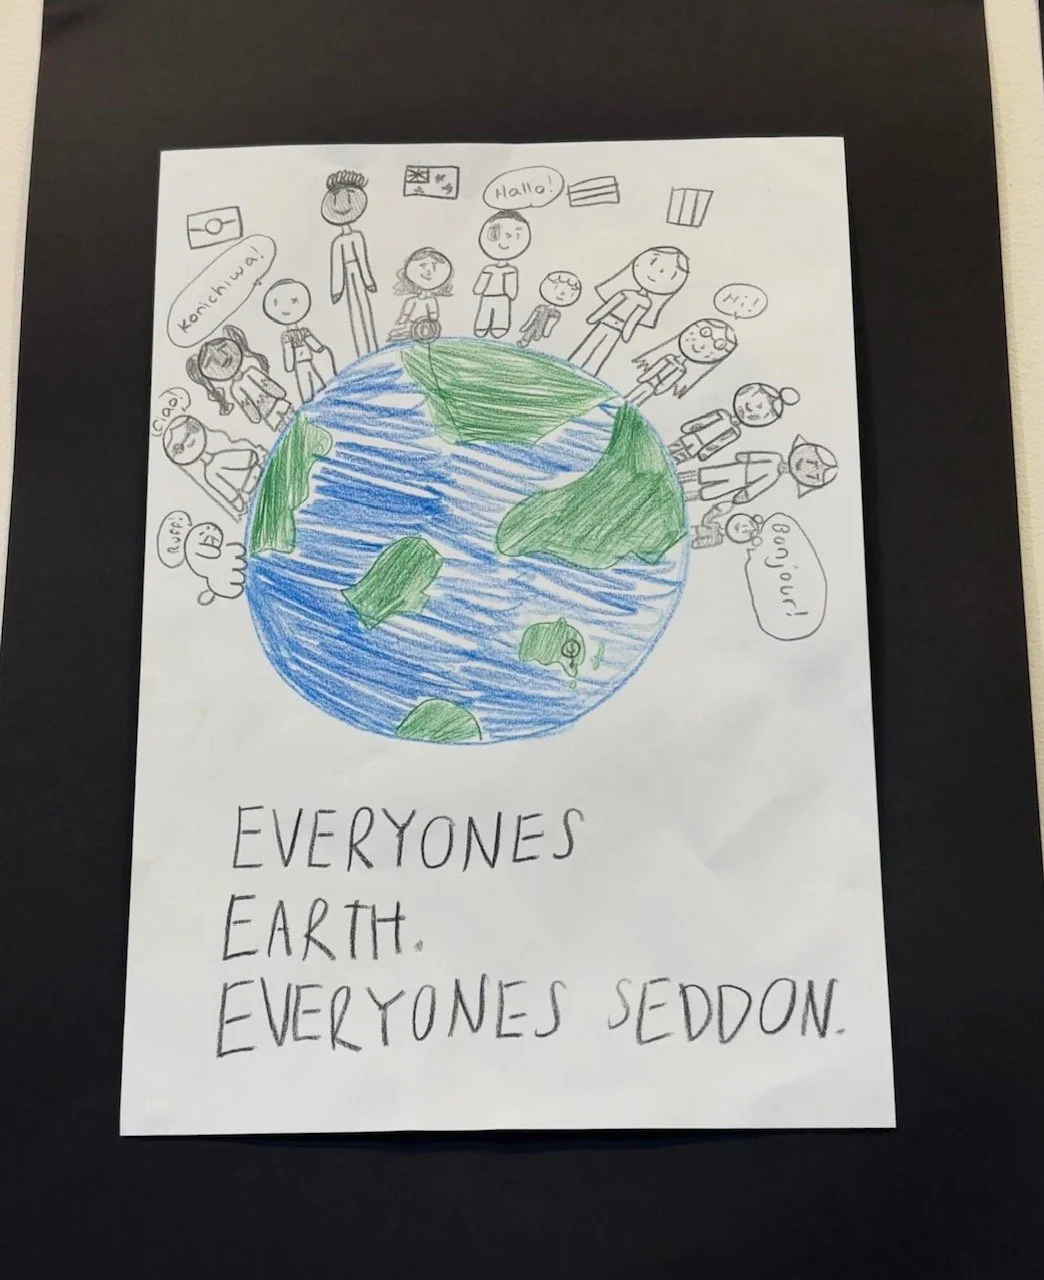 Hallo!
Konichiwa!
Hi!
Ciao!
Ruff!
Bonjour!
EVERYONES
EARTH.
EVERYONES SEDDON.